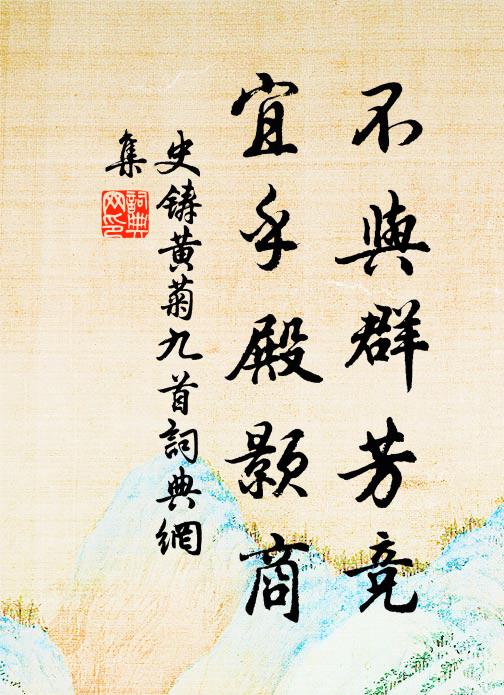 不與群芳競
宜乎殿顥商
史鑄黃菊九首詞典網
集
詞典網印